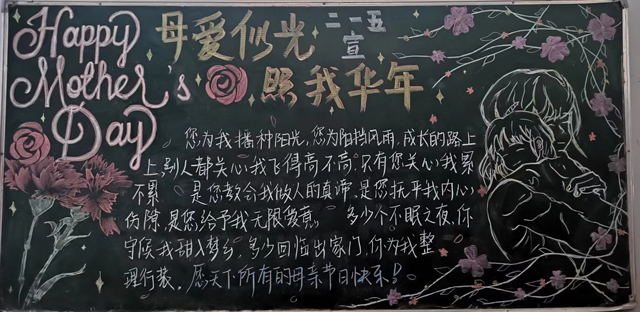 Happy
Mother's
Day
母爱似光
二一五
宣
照我华年
您为我播种阳光,您为阳挡风雨,成长的路上
上,别人都关心我飞得高不高.只有您关心我累
不累 是您教会我做人的真谛.是您抚平我内心
伤隙,是您给予我无限 多少个不眠之夜,你
守候我甜入梦乡,多少回临出家门,你为我整
理行装。愿天下所有的母亲节日快乐!